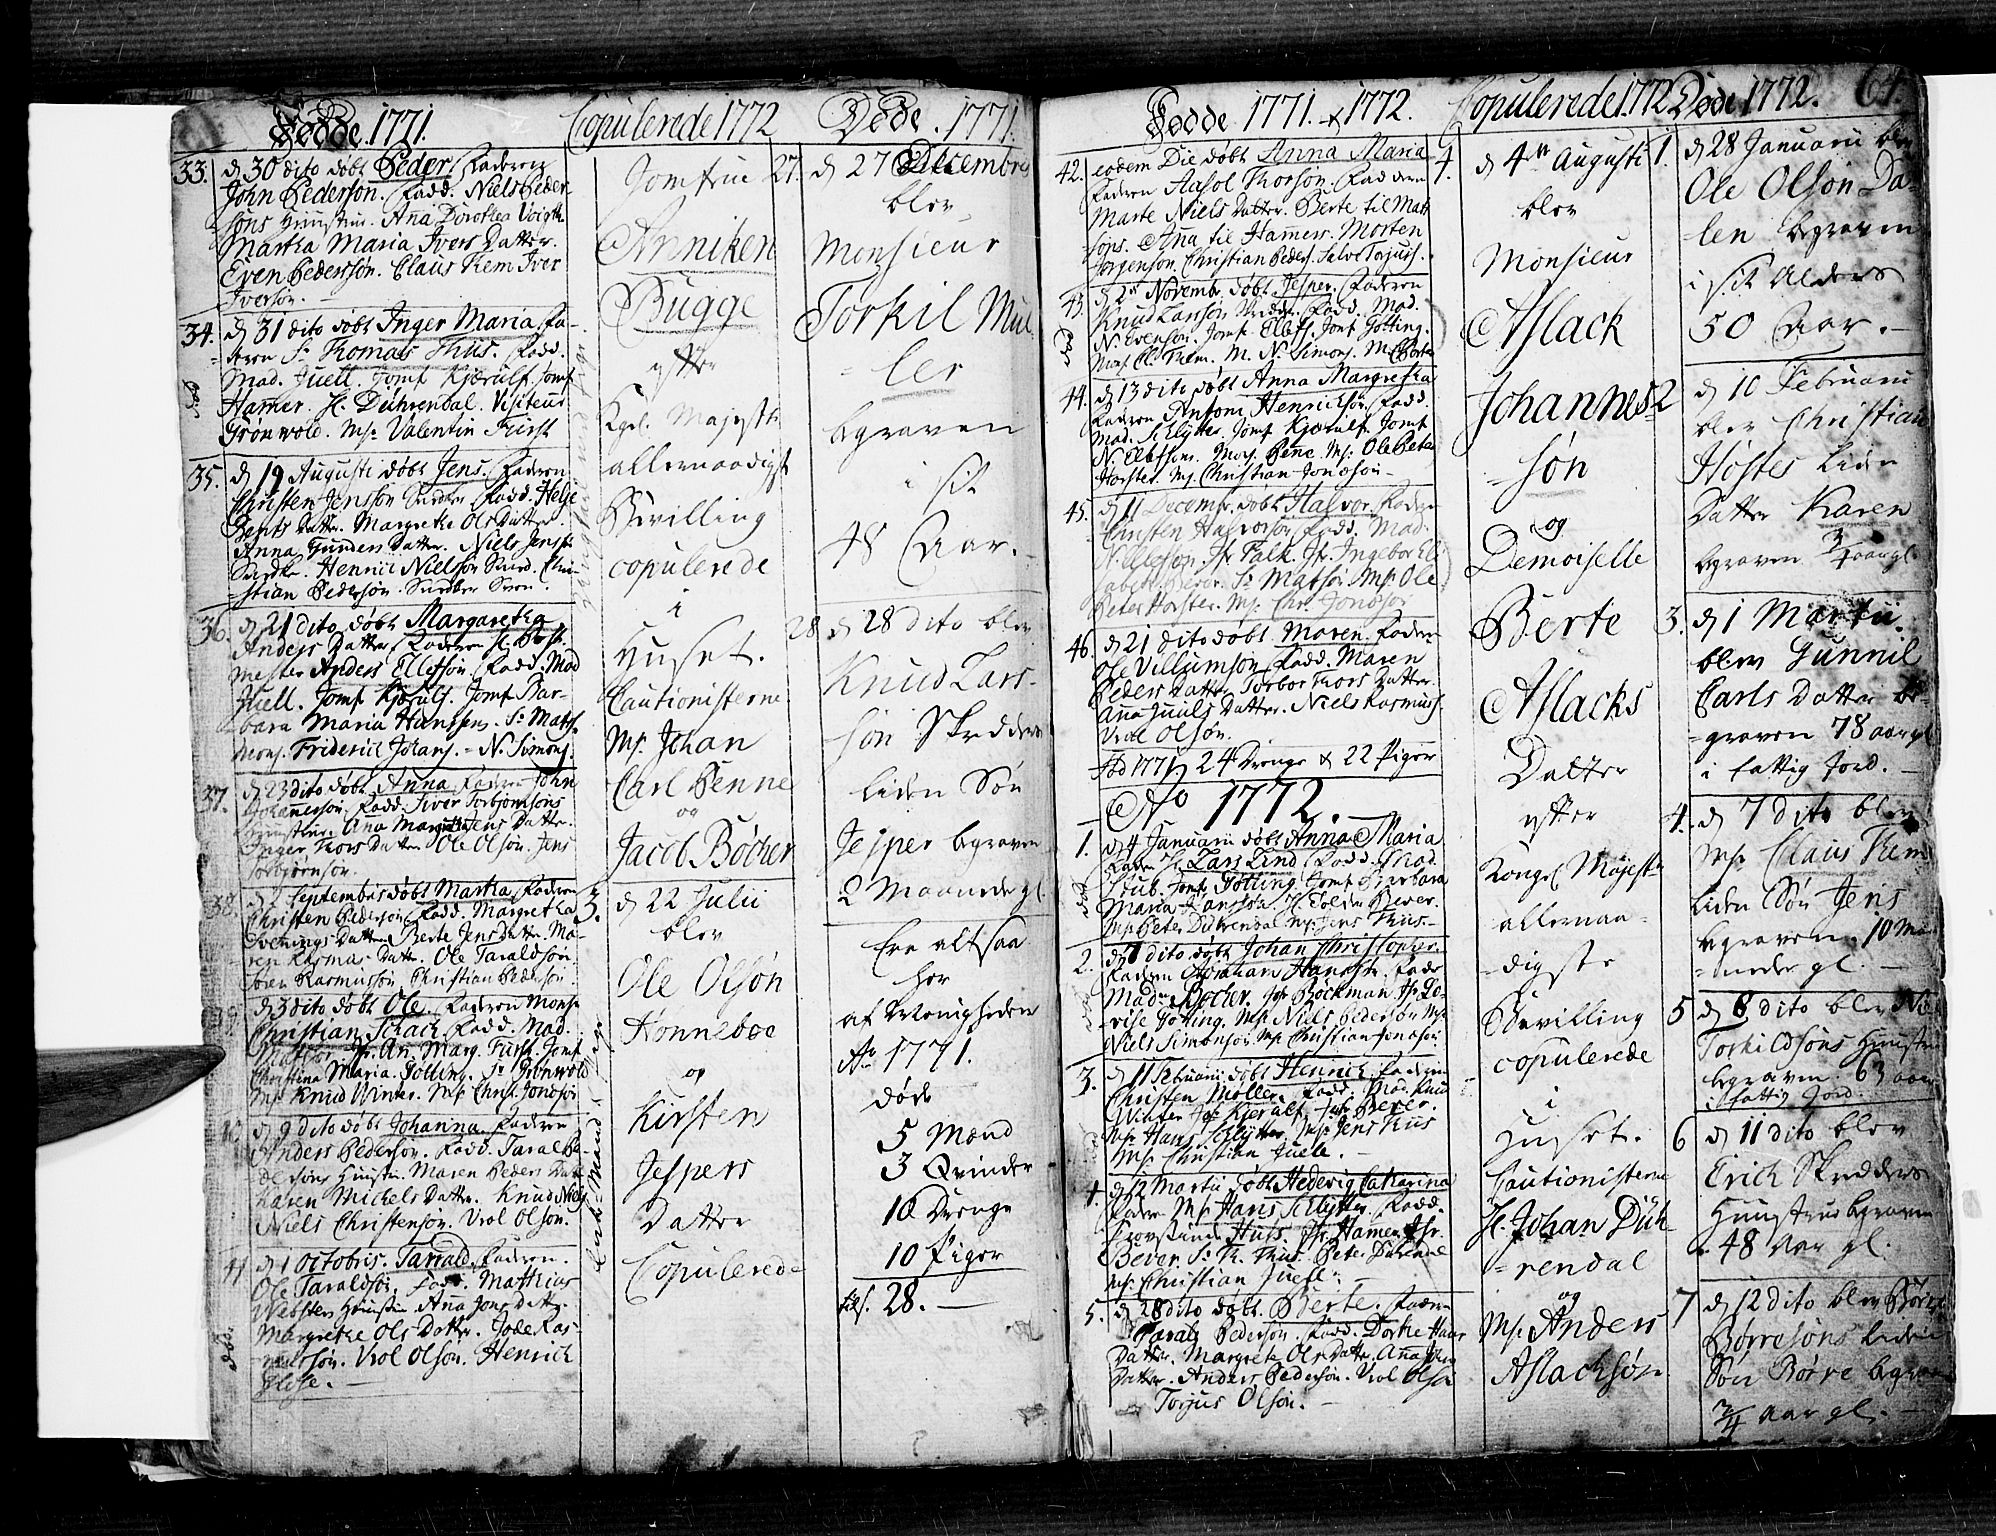 Fødde. 1771.
33. d 30 dito døbt Peder. Faderen
John Pederson. Fadd. Niels Peder-
sons Huustru. Ana Dorothea Voigth
Martha Maria Ivers Datter.
Even Pedersøn. Claus Them Iver
Iversøn.
34. d 31 dito døbt Inger Maria. Fa-
deren Sr Thomas Thus. Fadd.
Mad. Juell. Jomf Kjærulf Jomf
død
Hammer. H. Dührendal. Visiteur
Grønvold. Msr Valentin Fürst
35. d 19 Augusti døbt Jens. Faderen
Christen Jensøn Fadd. Helje
Bents Datter. Margrethe Ols Datter.
Anna Gunders Datter. Niels Jens
Henric Nielsøn Chri-
stian Pedersøn.
36. d 21 dito døbt Margaretha
Anders Datter. Faderen H.
mester Anders Ellefsøn. Fadd. Mad
Juell. Jomf Kjærulf. Jomf Bar-
bara Maria Hanssen. Sr Maths.
Mons. Friderich Johans. N. Simons.
37. d 23 dito døbt Anna. Faderen John
Johannesøn. Fadd. Siver Torbjørnsøns
Huustrue. Ana Jens Datter.
Inger Thors Datter Ole Olsøn. Jens
Torbjørnsøn.
38. d 2 Septembris døbt Martha. Faderen
Christen Pedersøn. Fadd. Margretha
Evenings Datter Berte Jens Datter. Ma-
ren Rasmus Datter. Ole Taraldsøn.
Søren Rasmussøn Christian Pedersøn
39. d 3 dito døbt Ole. Faderen Monsr
Christian Schach. Fadd. Mad.
An. Marg. Fürst. Jomf
Christina Maria Gølling. Sr Grønvold
Msr Knud Winter. Msr Christ. Jonasøn
40. d 9 dito døbt Johanna. Faderen
Anders Pedersøn. Fadd. Taral Pe-
dersøns Huustru Maren Peders Datter
Karen Michels Datter. Knud Niels
Niels Christensøn. Vrol Olsøn.
41 d 1 Octobris. Tarrald. Faderen.
Ole Taraldsøn. Fadd. Mathias
Websters Huustru Ana Jens Datter.
Margrethe Ols Datter. Jode Ras-
død.
mussøn. Vrol Olsøn. Henrich
Copulerede 1772
Jomfrue
Anniken
Bugge
efter
Kgel. Majests
allernaadigst
Bevilling
copulerede
i
Huset.
Cautionisterne
Msr Johan
Carl Benne
og
Jacob Bøcher
3. d 22 Julii
blev
Ole Olsøn
Honneboe
og
Kirsten
Jespers
Datter
Copulerede
Døde. 1771.
27. d 27 Decembris
blev
Monsieur
Torkil Mul
ler
begraven
i sit
48 Aar.
28 d 28 dito blev
Knud Lars-
søn Skreders
liden Søn
Jesper begraven
2 Maaneder gl.
Ere altsaa
her
af Menigheden
Ao 1771.
døde
5 Mænd
3 Qvinder
10 Drenge
10 Piger
tils. 28.
Fødde 1771. & 1772.
42. eodem Die døbt Anna Maria
Faderen Aasol Thorsøn. Fadderne
Marte Niels Datter. Berte til Mat
søns. Ana til Hamers. Morten
Jørgensøn. Christian Peders. Selve Torjus.
43. d 2 Novembr døbt Jesper. Faderen
Knud Larssøn Fadd. Mad.
død
N. Evenson. Jomf. Ellefs. Jomf Gølling.
Msr Cl. Them. M. N. Simons. M.
44. d 13 dito døbt Anna Margretha
Faderen Antoni Henrichsøn. Fadd.
Mad. Schlytter. Jomf Kjærulf. Jomf
N. Ellefsøn. Mons. Bene. Msr Ole Peter
Horster. Msr Christian Jonasøn
45. d 11 Decembr. døbt Halvor. Faderen
Christen Halvorsøn. Fadd. Mad.
N. Ellefsøn. Jfr Falk. Jfr Ingebor Eli
sabeth Bever. Sr Matsøn. Msr Ole
Peter Horster. Msr Chr. Jonasøn
46. d 21 dito døbt Maren. Faderen
Ole Villumsøn Fadd. Maren
Peders Datter Torbor Thors Datter.
Ana Juuls Datter. Niels Rasmuss.
Vrol Olsøn.
Fød 1771 24 Drenge & 22 Piger
Ao 1772.
1. d 4 Januarii døbt Anna Maria
Faderen H. Lars Lind. Fadd. Mad.
Stub. Jomf. Gølling. Jomf Barbara
død
Maria Hanssen. H. Tolder Bever.
Msr Peter Dührendal. Msr Jens Thus.
2. d 7 dito døbt Johan Christopher.
Faderen Abraham Hanssen. Fadd
Mad. Bøcher. Jfr Bøckman Jfr Lo-
død
vise Gølling. Msr Niels Pedersøn Msr
Niels Simonsøn Msr Christian Jonasøn
3. d 11 Februarii døbt Hennic. Faderen
Christen Møller. Fadd. Mad. Knud
Winter Jfr Kjærulf. Jfr Bever.
Msr Hans Schlytter. Msr Jens Thus
Msr Christian Juell.
4. d 12 Martii døbt Hedevig Catharina
Fader. Msr Hans Schlytter. Fadd.
Huss. Jfr Hamer Jfr.
Bever. Sr Th. Thus. Peter Dürendal
Msr Christian Juell.
5. d 28 dito døbt Berte. Faderen
Taralt Pedersøn. Fadd. Dorthe Hans
Datter. Margrete Ols Datter. Ana
Datter. Anders Pedersøn. Vrol Olsøn
Torjus Olsøn.
Copulerede. 1772
4. d 4de Augusti
blev
Monsieur
Aslack
Johannes-
søn
og
Demoiselle
Berte
Aslacks
Datter
efter
Kongel Majests
allernaa-
digste
Bevilling
copulerede
i
Huset.
Cautionisterne
H. Johan Düh-
rendal
og
Msr Anders
Aslacksøn
Døde 1772. 64.
1. d 28 Januarii blev
Ole Olsøn Da-
len begraven
i sit Alders
50 Aar.
2 d 10 Februarii
blev Christian
Høstes liden
Datter Karen
begraven 3/4 aar gl
3. d 1 Martii.
blev Gunnil
Carls Datter be-
graven 78 aar gl
i fattig Jord.
4. d 7 dito blev
Msr Claus Them
liden Søn Jens
begraven. 10 Maa-
neder gl.
5 d 8 dito blev
Torkildsøns Huustru
begraven. 63 aar
i fattig Jord.
6 d 11 dito blev
Erich Skredders
Huustrue begraven
48 Aar gl.
7 d 12 dito blev Børre
Børresøns liden
Søn Børre begraven
3/4 Aar gl.